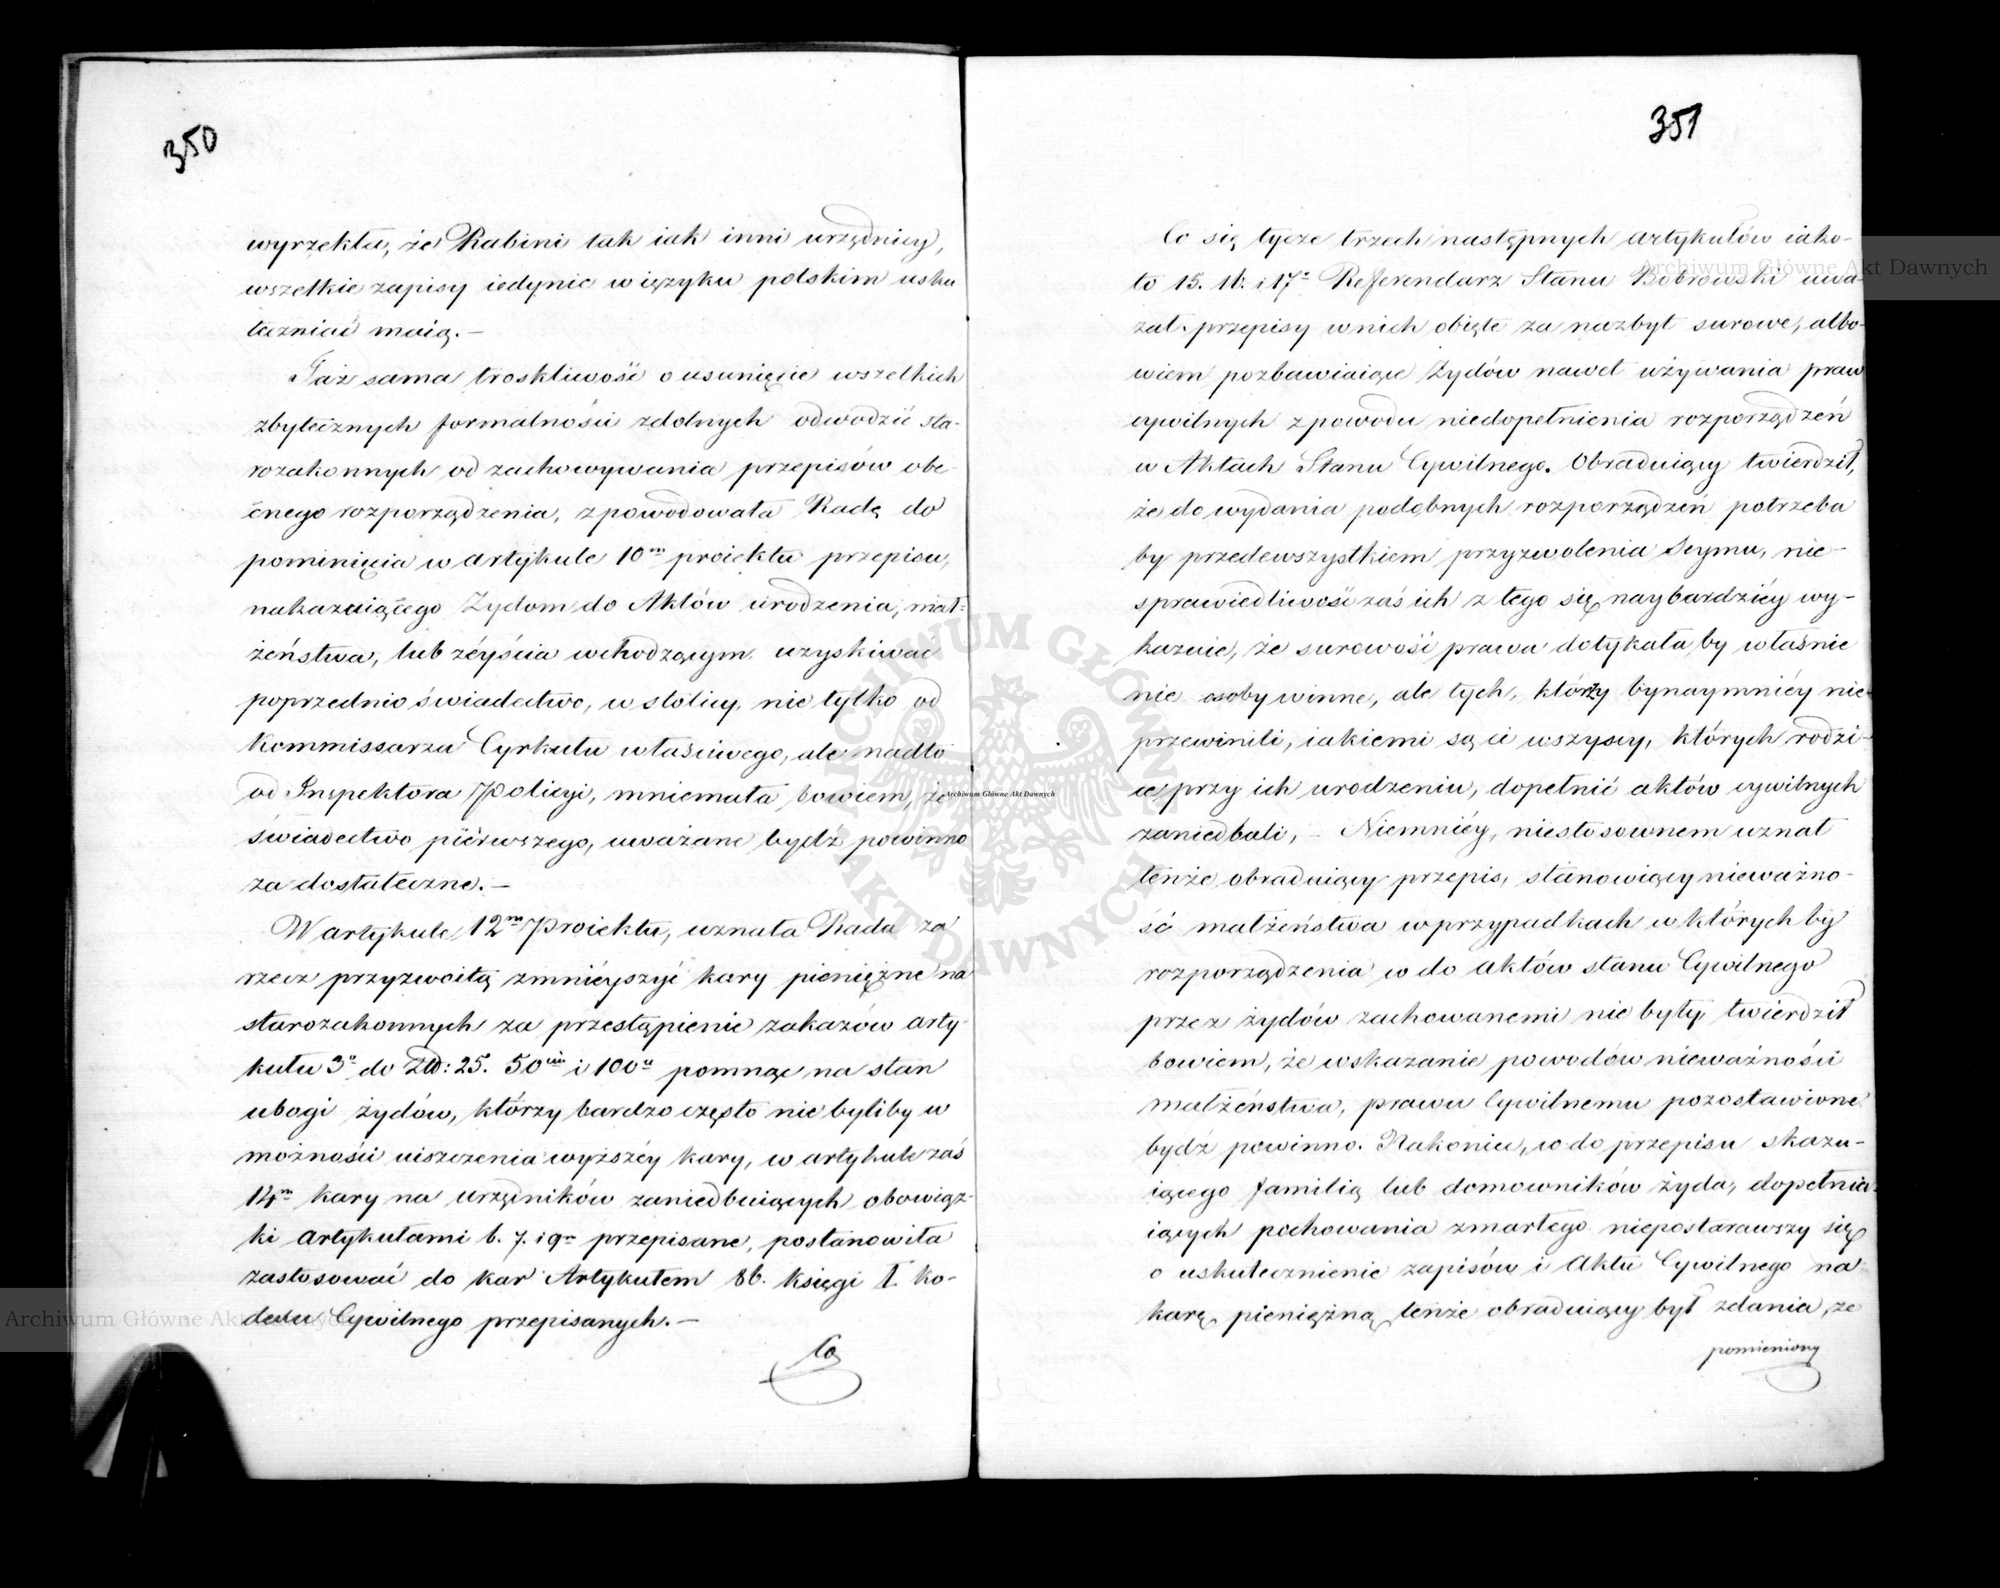 350
wyrzekła, że Rabini tak iak inni urzędnicy,
wszelkie zapisy iedynie w ięzyku polskim usku
teczniać maią.—
Taż sama troskliwość o usunięcie wszelkich
zbytecznych formalności zdolnych odwodzić sta-
rozakonnych od zachowywania przepisów obe-
cnego rozporządzenia, spowodowała Radę do
pominięcia w artykule 10m proiektu przepisu,
nakazuiącego Żydom do Aktów urodzenia, mał-
żeństwa, lub zéyścia wchodzącym uzyskiwać
poprzednio świadectwo, w stolicy, nie tylko od
Kommissarza Cyrkułu właściwego, ale nadto
od Inspektora Policyi, mniemała bowiem, że
świadectwo piérwszego, uważane bydź powinno
za dostateczne.—
W artykule 12m Proiektu, uznała Rada za
rzecz przyzwoitą zmniéyszyć kary pieniężne na
starozakonnych za przestąpienie zakazów arty-
kułu 3o do Złt: 25. 50ciu i 100u pomnąc na stan
ubogi żydów, którzy bardzo często nie byliby w
możności uiszczenia wyższéy kary, w artykule zaś
14m kary na urzędników zaniedbuiących obowiąz-
ki artykułami 6. 7. i 9m przepisane, postanowiła
zastosować do kar Artykułem 86. Księgi I. Ko-
dexu Cywilnego przepisanych.—
Co
351
Co się tycze trzech następnych artykułów iako-
to 15. 16. i 17o Referendarz Stanu Bobrowski uwa-
żał przepisy w nich obięte za nazbyt surowe, albo-
wiem pozbawiaiące Żydów nawet używania praw
cywilnych z powodu niedopełnienia rozporządzeń
w Aktach Stanu Cywilnego. Obraduiący twierdził,
że do wydania podobnych rozporządzeń potrzeba
by przedewszystkiem przyzwolenia Seymu, nie-
sprawiedliwość zaś ich z tego się naybardziéy wy-
kazuie, że surowość prawa dotykała by właśnie
nie osoby winne, ale tych, którzy bynaymniéy nie
przewinili, iakiemi są ci wszyscy, których rodzi-
ce przy ich urodzeniu, dopełnić aktów cywilnych
zaniedbali, — Niemniéy, niestosownem uznał
tenże obraduiący przepis, stanowiący nieważno-
ść małżeństwa w przypadkach w których by
rozporządzenia co do aktów stanu Cywilnego
przez żydów zachowanemi nie były, twierdził
bowiem, że wskazanie powodów nieważności
małżeństwa, prawu Cywilnemu pozostawione
bydź powinno. Nakoniec, co do przepisu skazu-
iącego familią lub domowników żyda, dopełnia-
iących pochowania zmarłego niepostarawszy się
o uskutecznienie zapisów i Aktu Cywilnego na
karę pieniężną, tenże obraduiący był zdania, że
pomieniony
Archiwum Główne Akt Dawnych
Archiwum Główne Akt Dawnych
ARCHIWUM GŁÓWNE AKT DAWNYCH
Archiwum Główne Akt Dawnych